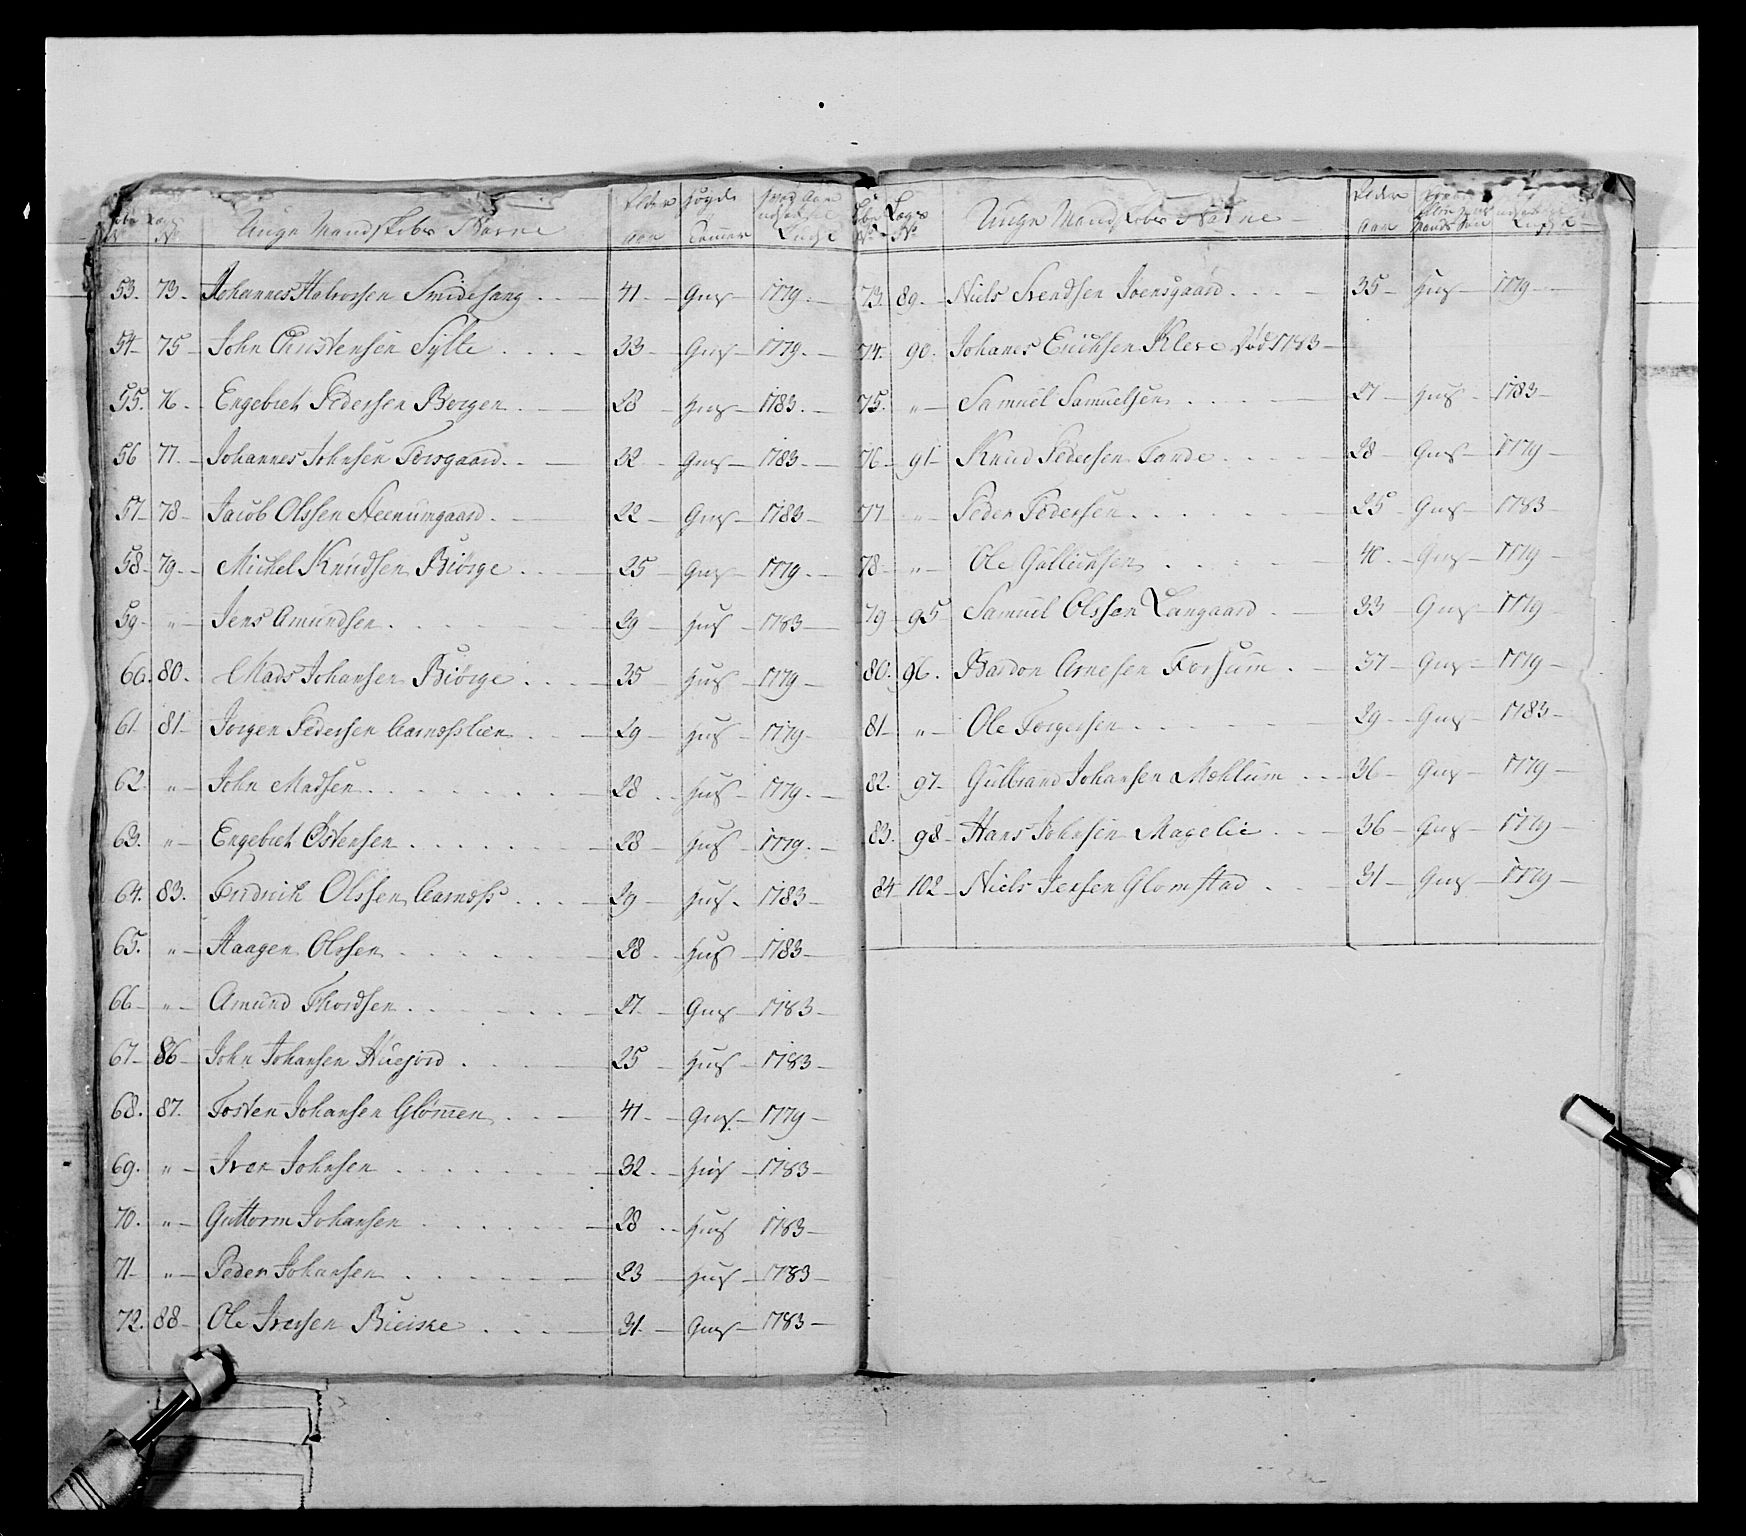 Unge Mandskabs Navne
53. 73. Johannes Halvorsen Smidesang 41 Gus 1779
54 75 John Christensen Sylte 33 Gus 1779
55. 76 Engebret Pedersen Bergen 28 Hus 1783
56 77 Johannes Johnsen Forsgaard 22 Gus 1783
57 78 Jacob Olssen Steenumgaard 22 Gus 1783
58 79 Michel Knudsen Biørge 25 Gus 1779
59 " Jens Amundsen 29 Hus 1783
60. 80. Mads Johansen Biørge 35 Hus 1779
61 81 Jørgen Pedersen Aarneslien 29 Hus 1779
62. " John Madsen 28 Hus 1779
63. " Engebret Østensen 28 Hus 1779
64. 83. Fridrich Olssen Aarness 29 Hus 1783
65. " Haagen Olssen 28 Hus 1783
66 " Amund Thordsen 27 Gus 1783
67 86 John Johansen 25 Hus 1783
68. 87. Tosten Johansen Glømmen 41 Gus 1779
69. " Iver Johnsen 32 Hus 1783
70. " Guttorm Johansen 28 Hus 1783
71 " Peder Johansen 23 Hus 1783
72. 88 Ole Iversen Bieiske 31 Gus 1783
Unge Mandskabs Navne
73. 89. Niels Svendsen Joensgaard 35 Hus 1779
74. 90. Johanes Erichsen Kleve død 1783
75. " Samuel Samuelsen 27 Hus 1783
76 91 Knud Pedersen Tande 28 Gus 1779
77 " Peder Pedersen 25 Gus 1783
78 " Ole Gullichsen 40 Gus 1779
79 95 Samuel Olssen Langaard 33 Gus 1779
80. 96. Bardon Arnesen Forsum 37 Gus 1779
81 " Ole Torgersen 29 Gus 1783
82. 97 Gulbrand Johansen Mæhlum 36 Gus 1779
83. 98 Hans Johnsen Magelie 36 Gus 1779
84 102 Niels Jensen Glomstad 31 Gus 1779